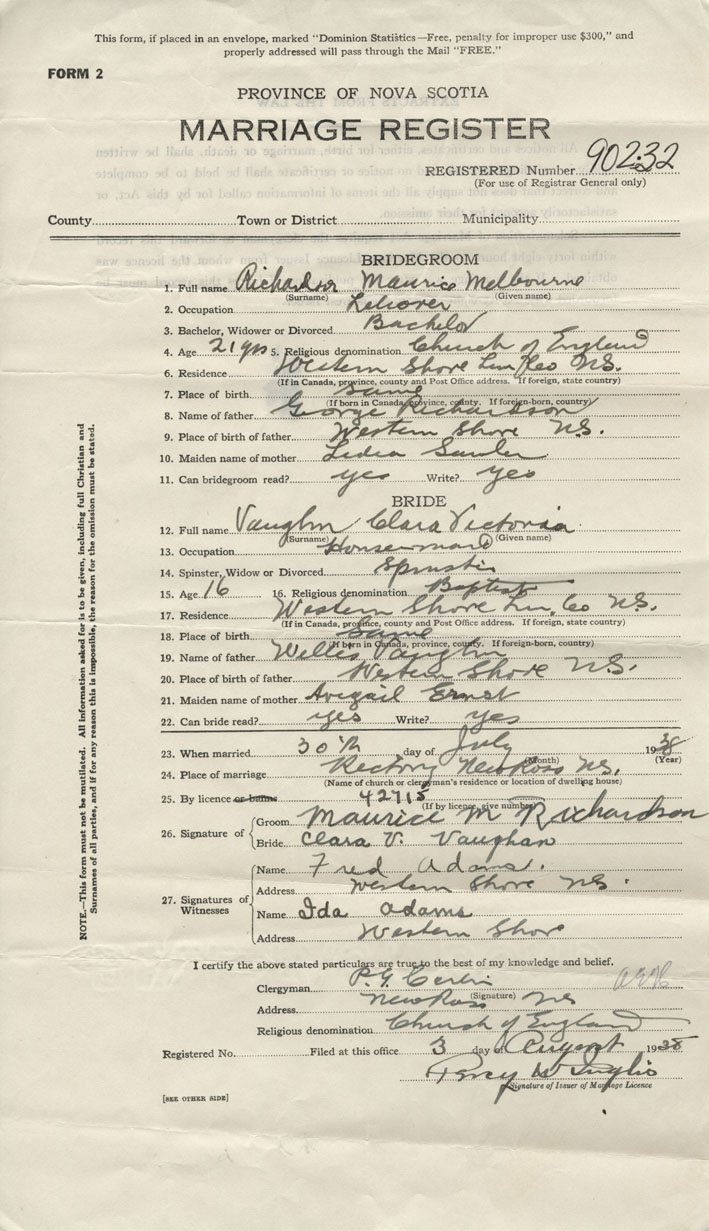 This form, if placed in an envelope, marked "Dominion Statistics—Free, penalty for improper use $300," and
properly addressed will pass through the Mail "FREE."
FORM 2
PROVINCE OF NOVA SCOTIA
MARRIAGE REGISTER
REGISTERED Number 90232
(For use of Registrar General only)
County Town or District Municipality
BRIDEGROOM
1. Full name Richardson Maurice Melbourne
(Surname) (Given name)
2. Occupation Labourer
3. Bachelor, Widower or Divorced Bachelor
4. Age 21 yrs 5. Religious denomination Church of England
6. Residence Western Shore Lun Co N.S.
(If in Canada, province, county and Post Office address. If foreign, state country)
7. Place of birth Same
(If born in Canada, province, county. If foreign-born, country)
8. Name of father George Richardson
9. Place of birth of father Western Shore N.S.
10. Maiden name of mother Lidia
11. Can bridegroom read? yes Write? yes
BRIDE
12. Full name Vaughn Clara Victoria
(Surname) (Given name)
13. Occupation Housemaid
14. Spinster, Widow or Divorced Spinster
15. Age 16 16. Religious denomination Baptist
17. Residence Western Shore Lun, Co N.S.
(If in Canada, province, county and Post Office address. If foreign, state country)
18. Place of birth Same
(If born in Canada, province, county. If foreign-born, country)
19. Name of father Willis Vaughn
20. Place of birth of father Western Shore N.S.
21. Maiden name of mother Avigail Ernst
22. Can bride read? yes Write? yes
23. When married 30'th day of July 1938
(Month) (Year)
24. Place of marriage Rectory New Ross N.S.
(Name of church or clergyman's residence or location of dwelling house)
25. By licence or banns 42715
(If by licence, give number)
26. Signature of Groom Maurice M Richardson
Bride Clara V. Vaughan
27. Signatures of Witnesses
Name Fred Adams.
Address Western Shore N.S.
Name Ida Adams
Address Western Shore
I certify the above stated particulars are true to the best of my knowledge and belief.
Clergyman P. G.
(Signature)
Address New Ross N.S
Religious denomination Church of England
Registered No. Filed at this office 3 day of August 1938
Percy W Inglis
Signature of Issuer of Marriage Licence
[SEE OTHER SIDE]
NOTE.—This form must not be mutilated. All information asked for is to be given, including full Christian and
Surnames of all parties, and if for any reason this is impossible, the reason for the omission must be stated.